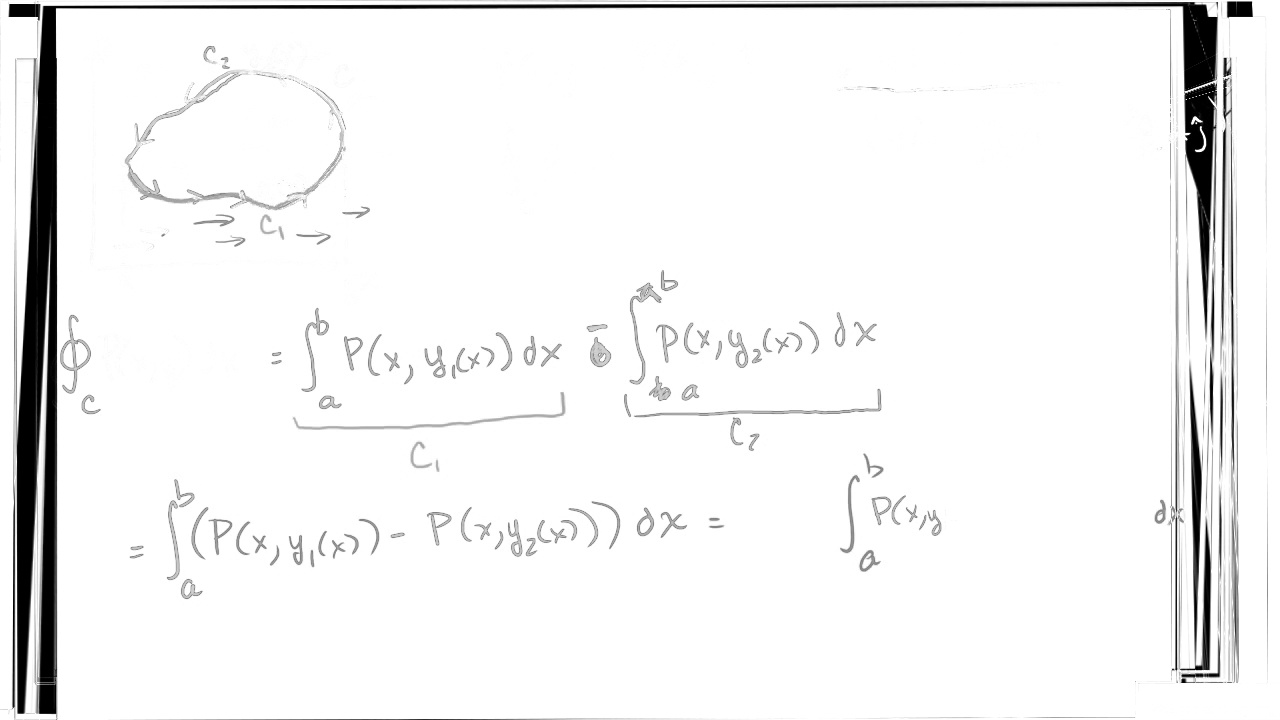 C₂
C₁
ĵ
∮_C = ∫_a^b P(x, y₁(x)) dx - ∫_a^b P(x, y₂(x)) dx
C₁ C₂
= ∫_a^b (P(x, y₁(x)) - P(x, y₂(x))) dx = ∫_a^b P(x, y dx